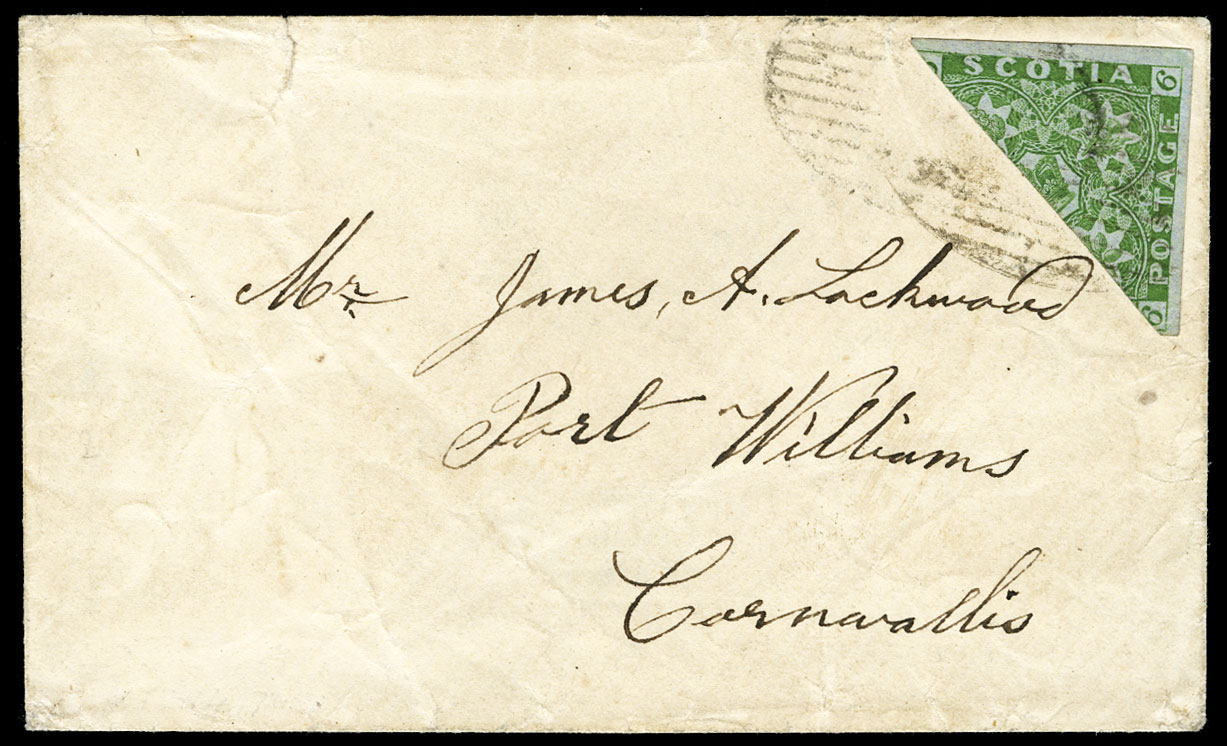 SCOTIA
6
POSTAGE
6
Mr James, A. Lockwood
Port Williams
Cornwallis